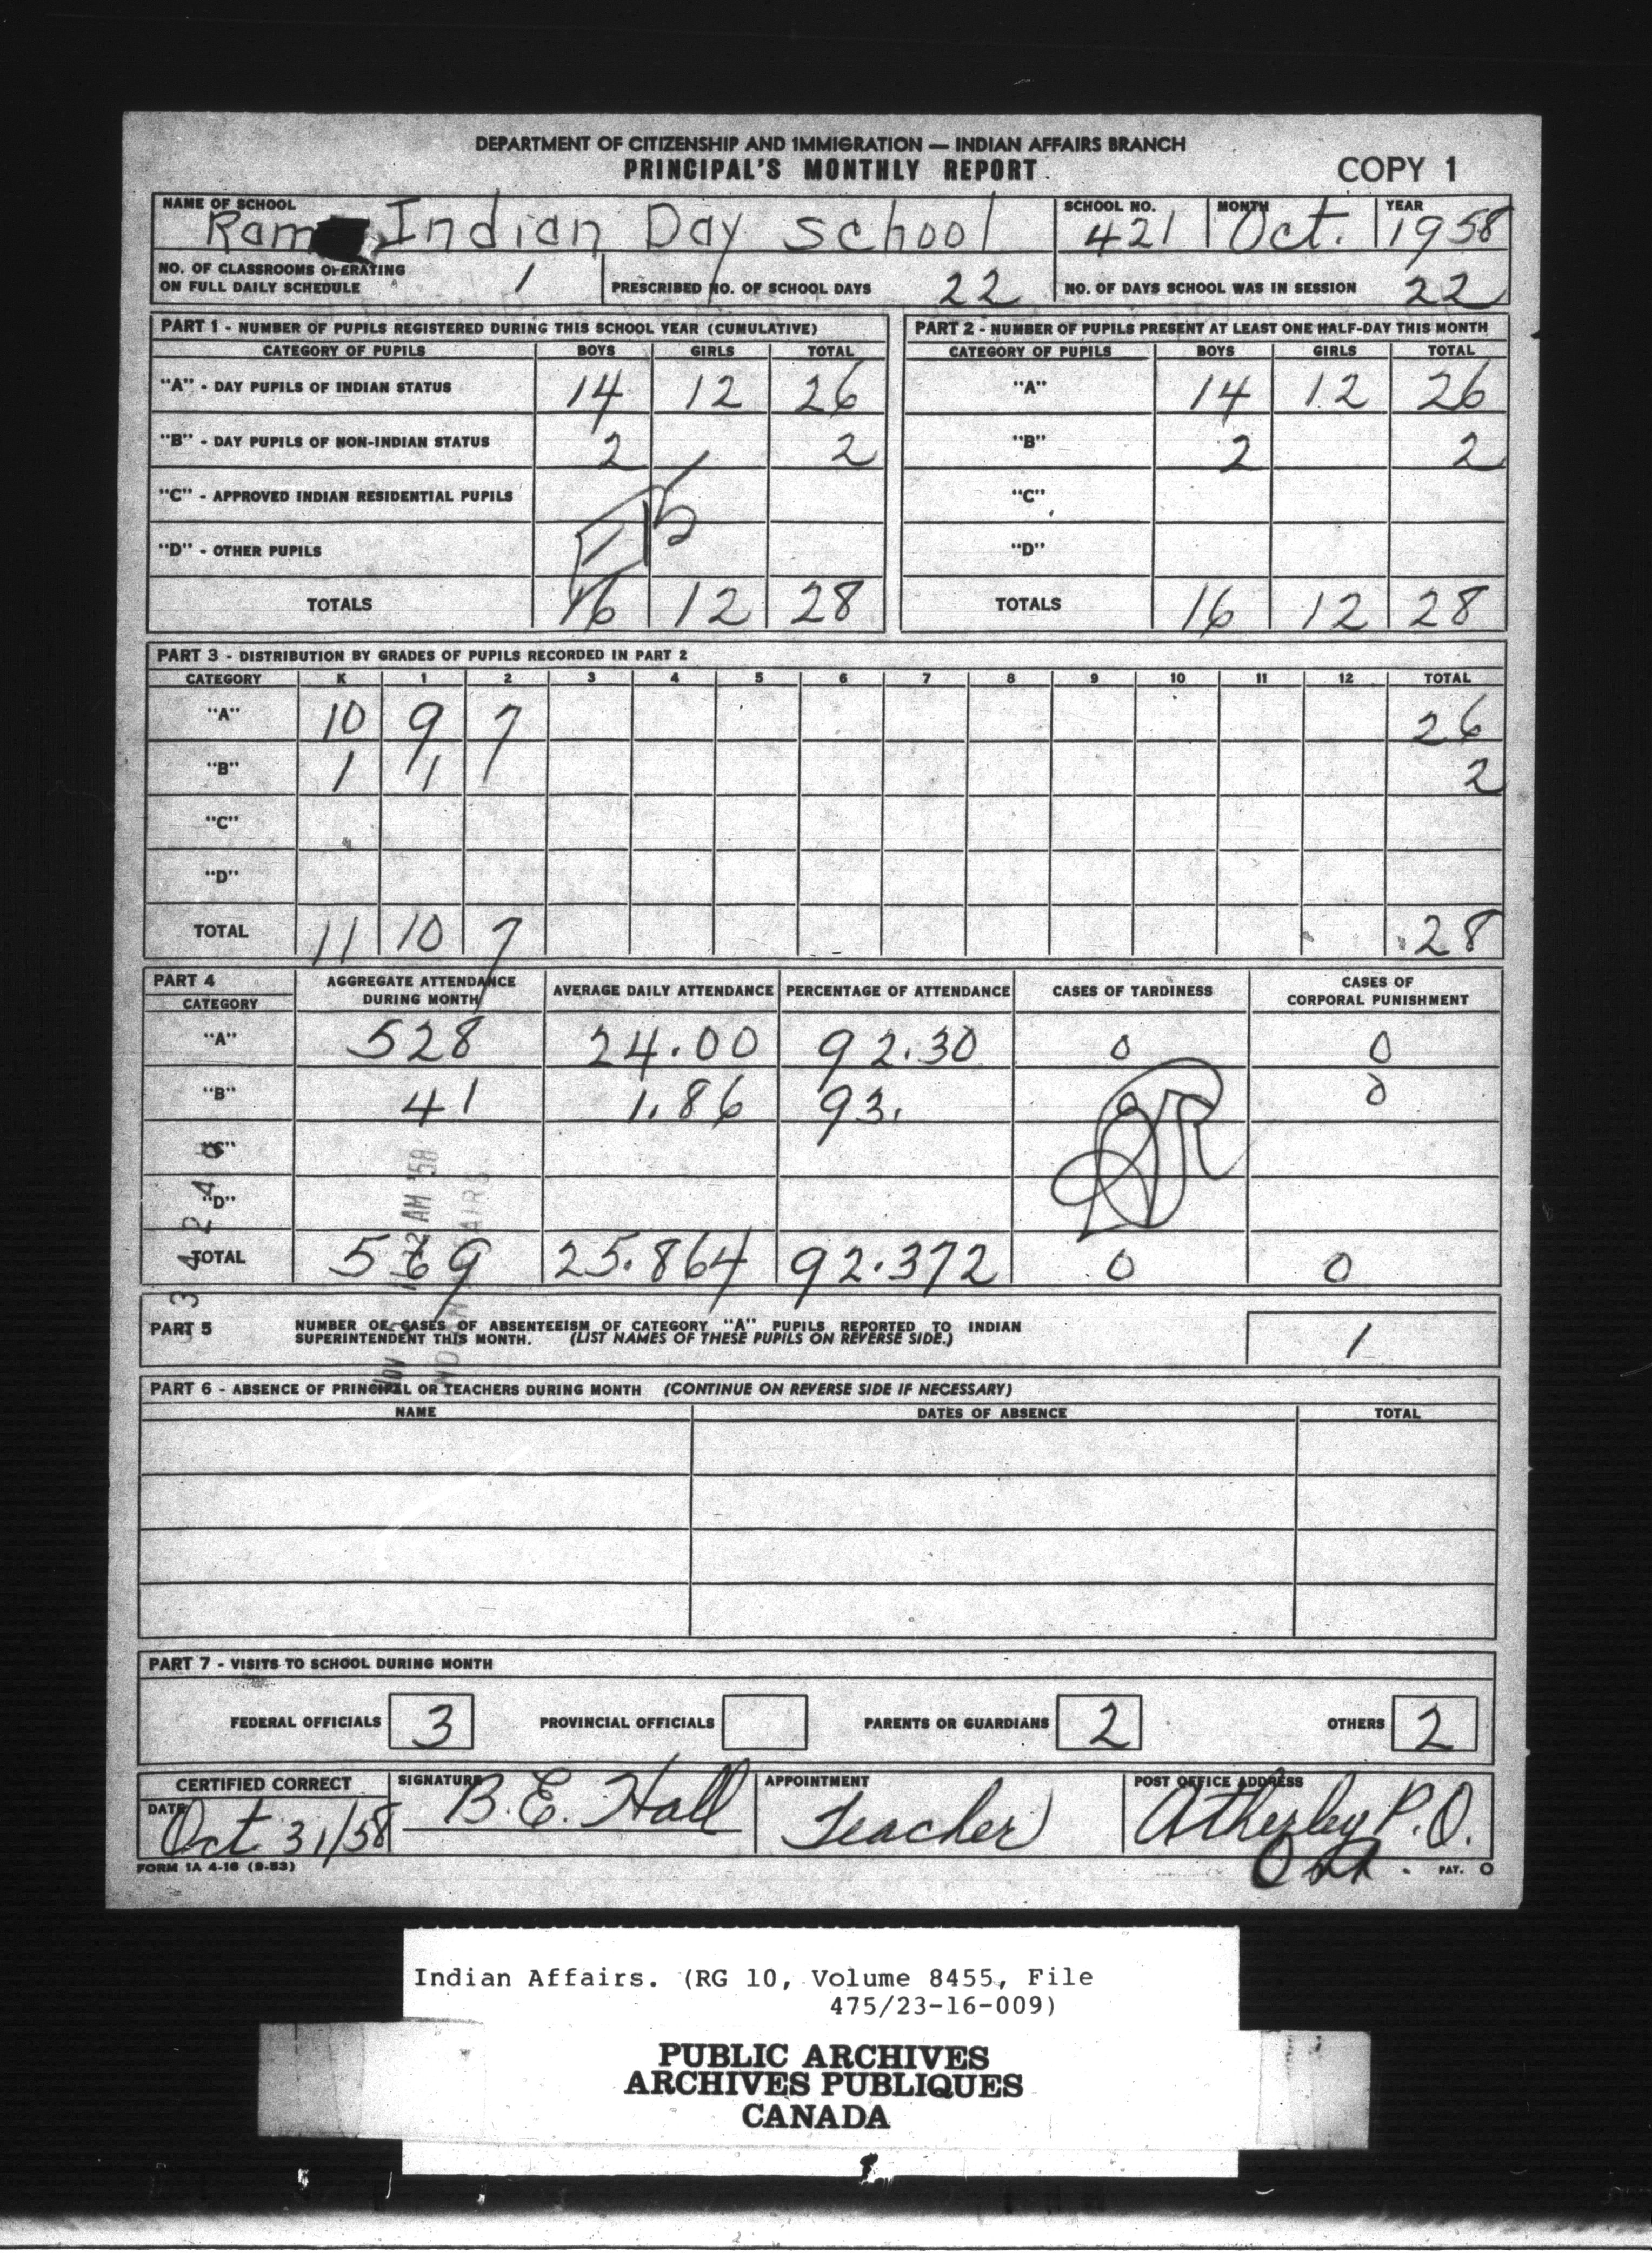 DEPARTMENT OF CITIZENSHIP AND IMMIGRATION — INDIAN AFFAIRS BRANCH
PRINCIPAL'S MONTHLY REPORT
COPY 1
NAME OF SCHOOL SCHOOL NO. MONTH YEAR
Ram Indian Day School 421 Oct. 1958
NO. OF CLASSROOMS OPERATING
ON FULL DAILY SCHEDULE 1 PRESCRIBED NO. OF SCHOOL DAYS 22 NO. OF DAYS SCHOOL WAS IN SESSION 22
PART 1 - NUMBER OF PUPILS REGISTERED DURING THIS SCHOOL YEAR (CUMULATIVE)
CATEGORY OF PUPILS BOYS GIRLS TOTAL
"A" - DAY PUPILS OF INDIAN STATUS 14 12 26
"B" - DAY PUPILS OF NON-INDIAN STATUS 2 2
"C" - APPROVED INDIAN RESIDENTIAL PUPILS
"D" - OTHER PUPILS
TOTALS 16 12 28
PART 2 - NUMBER OF PUPILS PRESENT AT LEAST ONE HALF-DAY THIS MONTH
CATEGORY OF PUPILS BOYS GIRLS TOTAL
"A" 14 12 26
"B" 2 2
"C"
"D"
TOTALS 16 12 28
PART 3 - DISTRIBUTION BY GRADES OF PUPILS RECORDED IN PART 2
CATEGORY K 1 2 3 4 5 6 7 8 9 10 11 12 TOTAL
"A" 10 9 7 26
"B" 1 1 2
"C"
"D"
TOTAL 11 10 7 28
PART 4
CATEGORY AGGREGATE ATTENDANCE DURING MONTH AVERAGE DAILY ATTENDANCE PERCENTAGE OF ATTENDANCE CASES OF TARDINESS CASES OF CORPORAL PUNISHMENT
"A" 528 24.00 92.30 0 0
"B" 41 1.86 93. 0 0
"C"
"D"
TOTAL 569 25.864 92.372 0 0
PART 5 NUMBER OF CASES OF ABSENTEEISM OF CATEGORY "A" PUPILS REPORTED TO INDIAN
SUPERINTENDENT THIS MONTH. (LIST NAMES OF THESE PUPILS ON REVERSE SIDE.) 1
PART 6 - ABSENCE OF PRINCIPAL OR TEACHERS DURING MONTH (CONTINUE ON REVERSE SIDE IF NECESSARY)
NAME DATES OF ABSENCE TOTAL
PART 7 - VISITS TO SCHOOL DURING MONTH
FEDERAL OFFICIALS 3 PROVINCIAL OFFICIALS PARENTS OR GUARDIANS 2 OTHERS 2
CERTIFIED CORRECT SIGNATURE APPOINTMENT POST OFFICE ADDRESS
DATE Oct 31/58 B.E. Hall Teacher Atherley P.O.
Ont.
FORM 1A 4-16 (9-53) PAT. O
Indian Affairs. (RG 10, Volume 8455, File
475/23-16-009)
PUBLIC ARCHIVES
ARCHIVES PUBLIQUES
CANADA